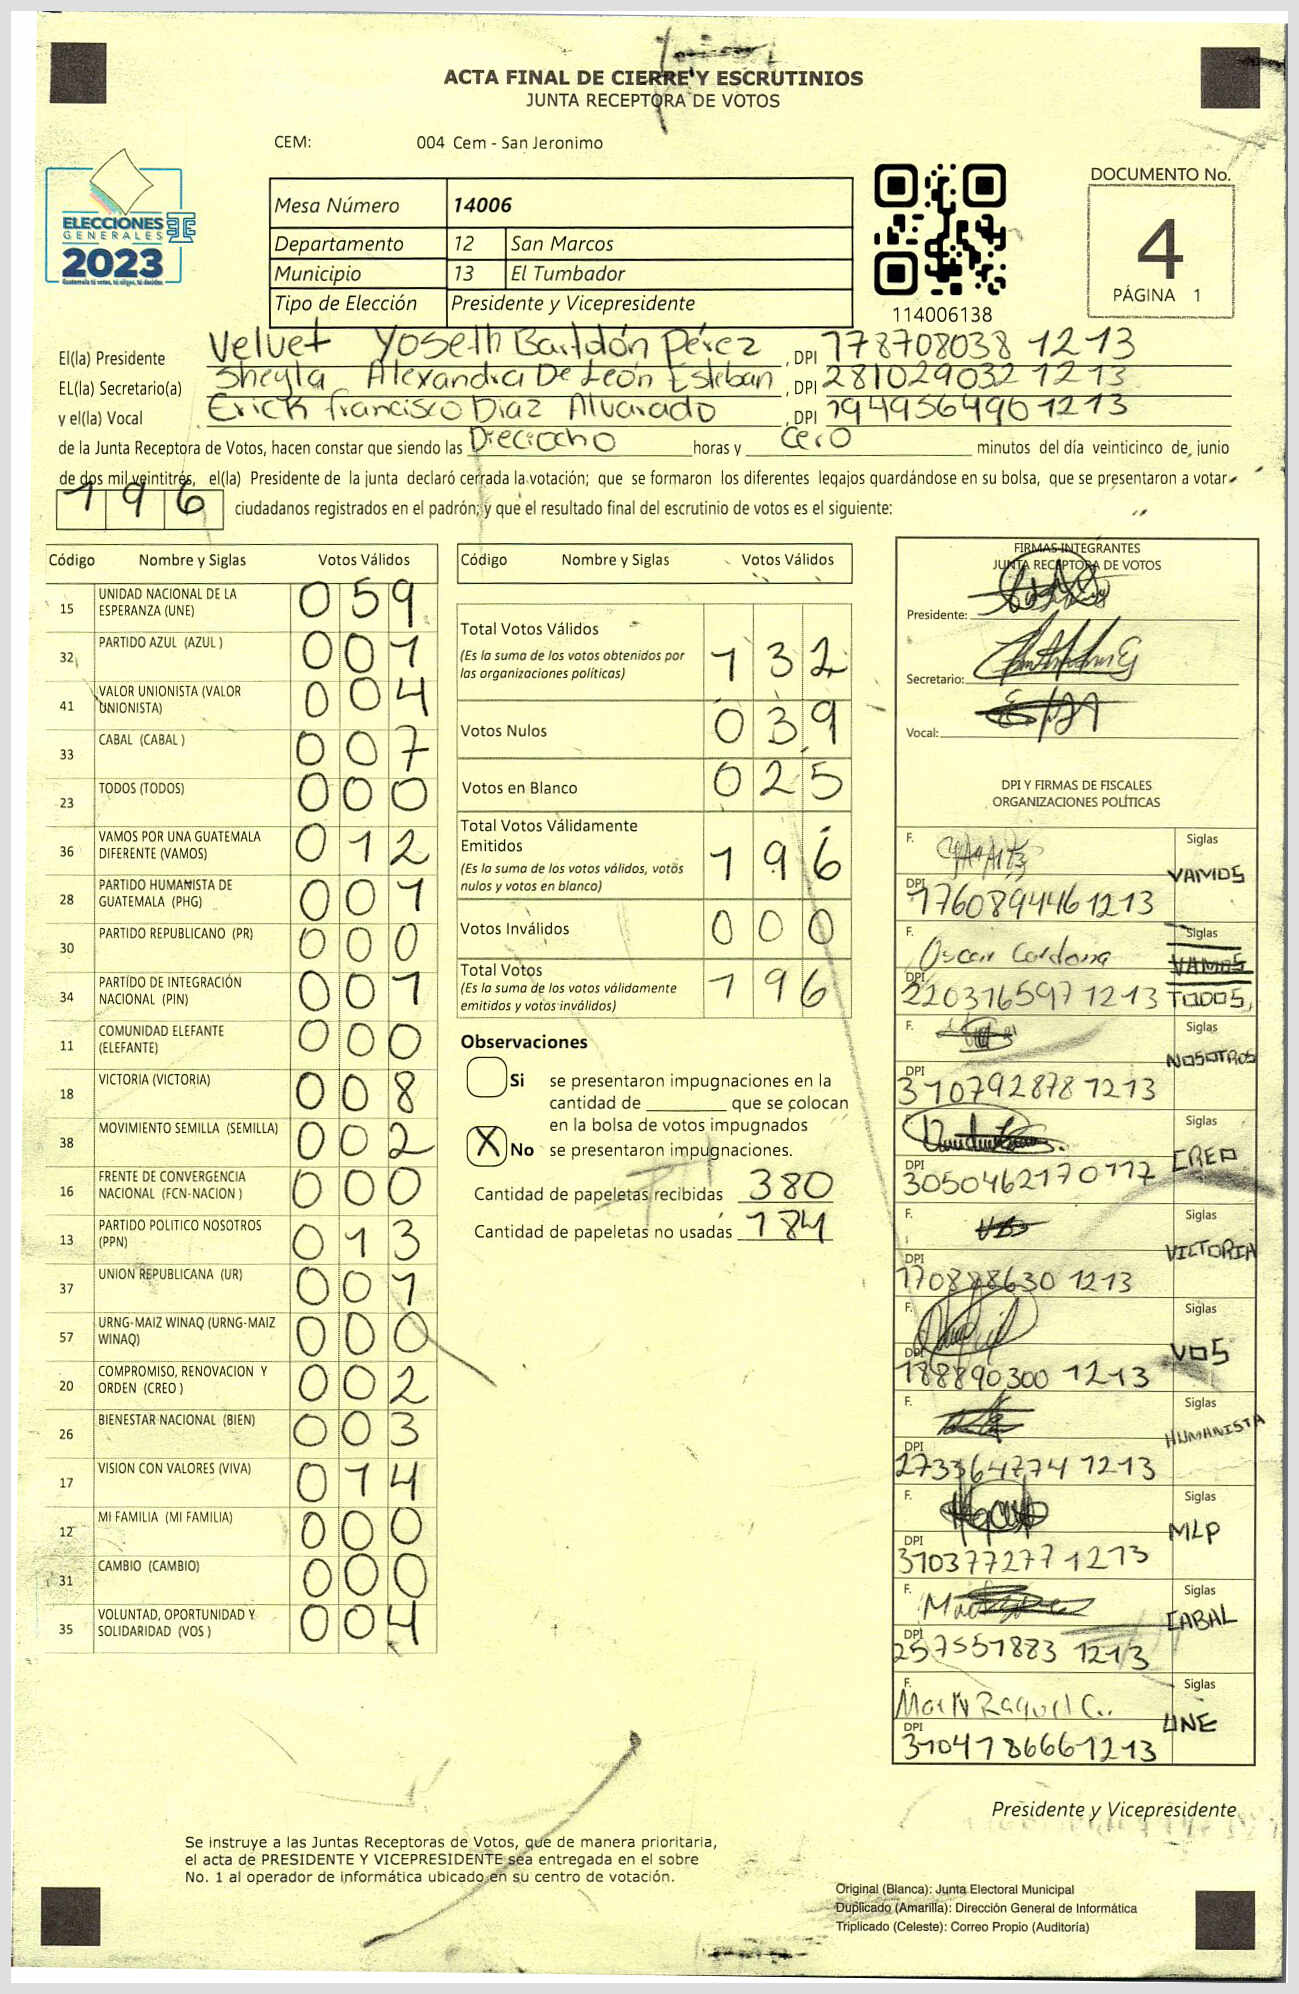 ACTA FINAL DE CIERRE Y ESCRUTINIOS
JUNTA RECEPTORA DE VOTOS
CEM: 004 Cem - San Jeronimo
ELECCIONES
GENERALES
2023
Guatemala tú votas, tú eliges, tú decides
Mesa Número 14006
Departamento 12 San Marcos
Municipio 13 El Tumbador
Tipo de Elección Presidente y Vicepresidente
114006138
DOCUMENTO No.
4
PÁGINA 1
El(la) Presidente Velvet Yoseth Bardón Pérez, DPI 178708038 1213
EL(la) Secretario(a) Sheyla Alexandra De León Esteban, DPI 281029032 1213
y el(la) Vocal Erick francisco Diaz Alvarado, DPI 194956490 1213
de la Junta Receptora de Votos, hacen constar que siendo las Dieciocho horas y Cero minutos del día veinticinco de junio
de dos mil veintitrés, el(la) Presidente de la junta declaró cerrada la votación; que se formaron los diferentes legajos guardándose en su bolsa, que se presentaron a votar
196 ciudadanos registrados en el padrón; y que el resultado final del escrutinio de votos es el siguiente:
Código Nombre y Siglas Votos Válidos
15 UNIDAD NACIONAL DE LA ESPERANZA (UNE) 059
32 PARTIDO AZUL (AZUL ) 001
41 VALOR UNIONISTA (VALOR UNIONISTA) 004
33 CABAL (CABAL ) 007
23 TODOS (TODOS) 000
36 VAMOS POR UNA GUATEMALA DIFERENTE (VAMOS) 012
28 PARTIDO HUMANISTA DE GUATEMALA (PHG) 001
30 PARTIDO REPUBLICANO (PR) 000
34 PARTIDO DE INTEGRACIÓN NACIONAL (PIN) 001
11 COMUNIDAD ELEFANTE (ELEFANTE) 000
18 VICTORIA (VICTORIA) 008
38 MOVIMIENTO SEMILLA (SEMILLA) 002
16 FRENTE DE CONVERGENCIA NACIONAL (FCN-NACION ) 000
13 PARTIDO POLITICO NOSOTROS (PPN) 013
37 UNION REPUBLICANA (UR) 001
57 URNG-MAIZ WINAQ (URNG-MAIZ WINAQ) 000
20 COMPROMISO, RENOVACION Y ORDEN (CREO ) 002
26 BIENESTAR NACIONAL (BIEN) 003
17 VISION CON VALORES (VIVA) 014
12 MI FAMILIA (MI FAMILIA) 000
31 CAMBIO (CAMBIO) 000
35 VOLUNTAD, OPORTUNIDAD Y SOLIDARIDAD (VOS ) 004
Código Nombre y Siglas Votos Válidos
Total Votos Válidos 132
(Es la suma de los votos obtenidos por
las organizaciones políticas)
Votos Nulos 039
Votos en Blanco 025
Total Votos Válidamente
Emitidos 196
(Es la suma de los votos válidos, votos
nulos y votos en blanco)
Votos Inválidos 000
Total Votos 196
(Es la suma de los votos válidamente
emitidos y votos inválidos)
Observaciones
Si se presentaron impugnaciones en la
cantidad de ________ que se colocan
en la bolsa de votos impugnados
X No se presentaron impugnaciones.
Cantidad de papeletas recibidas 380
Cantidad de papeletas no usadas 184
FIRMAS INTEGRANTES
JUNTA RECEPTORA DE VOTOS
Presidente:
Secretario:
Vocal:
DPI Y FIRMAS DE FISCALES
ORGANIZACIONES POLÍTICAS
F. Siglas VAMOS
DPI 176089446 1213
F. Oscar Cardona Siglas VAMOS TODOS
DPI 220316597 1213
F. Siglas NOSOTROS
DPI 310792878 1213
F. Siglas CREO
DPI 305046217 0117
F. Siglas VICTORIA
DPI 170888630 1213
F. Siglas VOS
DPI 188890300 1213
F. Siglas HUMANISTA
DPI 273364774 1213
F. Siglas MLP
DPI 310377277 1213
F. Siglas CABAL
DPI 257551883 1213
F. Siglas UNE
DPI 310478666 1213
Presidente y Vicepresidente
Se instruye a las Juntas Receptoras de Votos, que de manera prioritaria,
el acta de PRESIDENTE Y VICEPRESIDENTE sea entregada en el sobre
No. 1 al operador de informática ubicado en su centro de votación.
Original (Blanca): Junta Electoral Municipal
Duplicado (Amarilla): Dirección General de Informática
Triplicado (Celeste): Correo Propio (Auditoría)